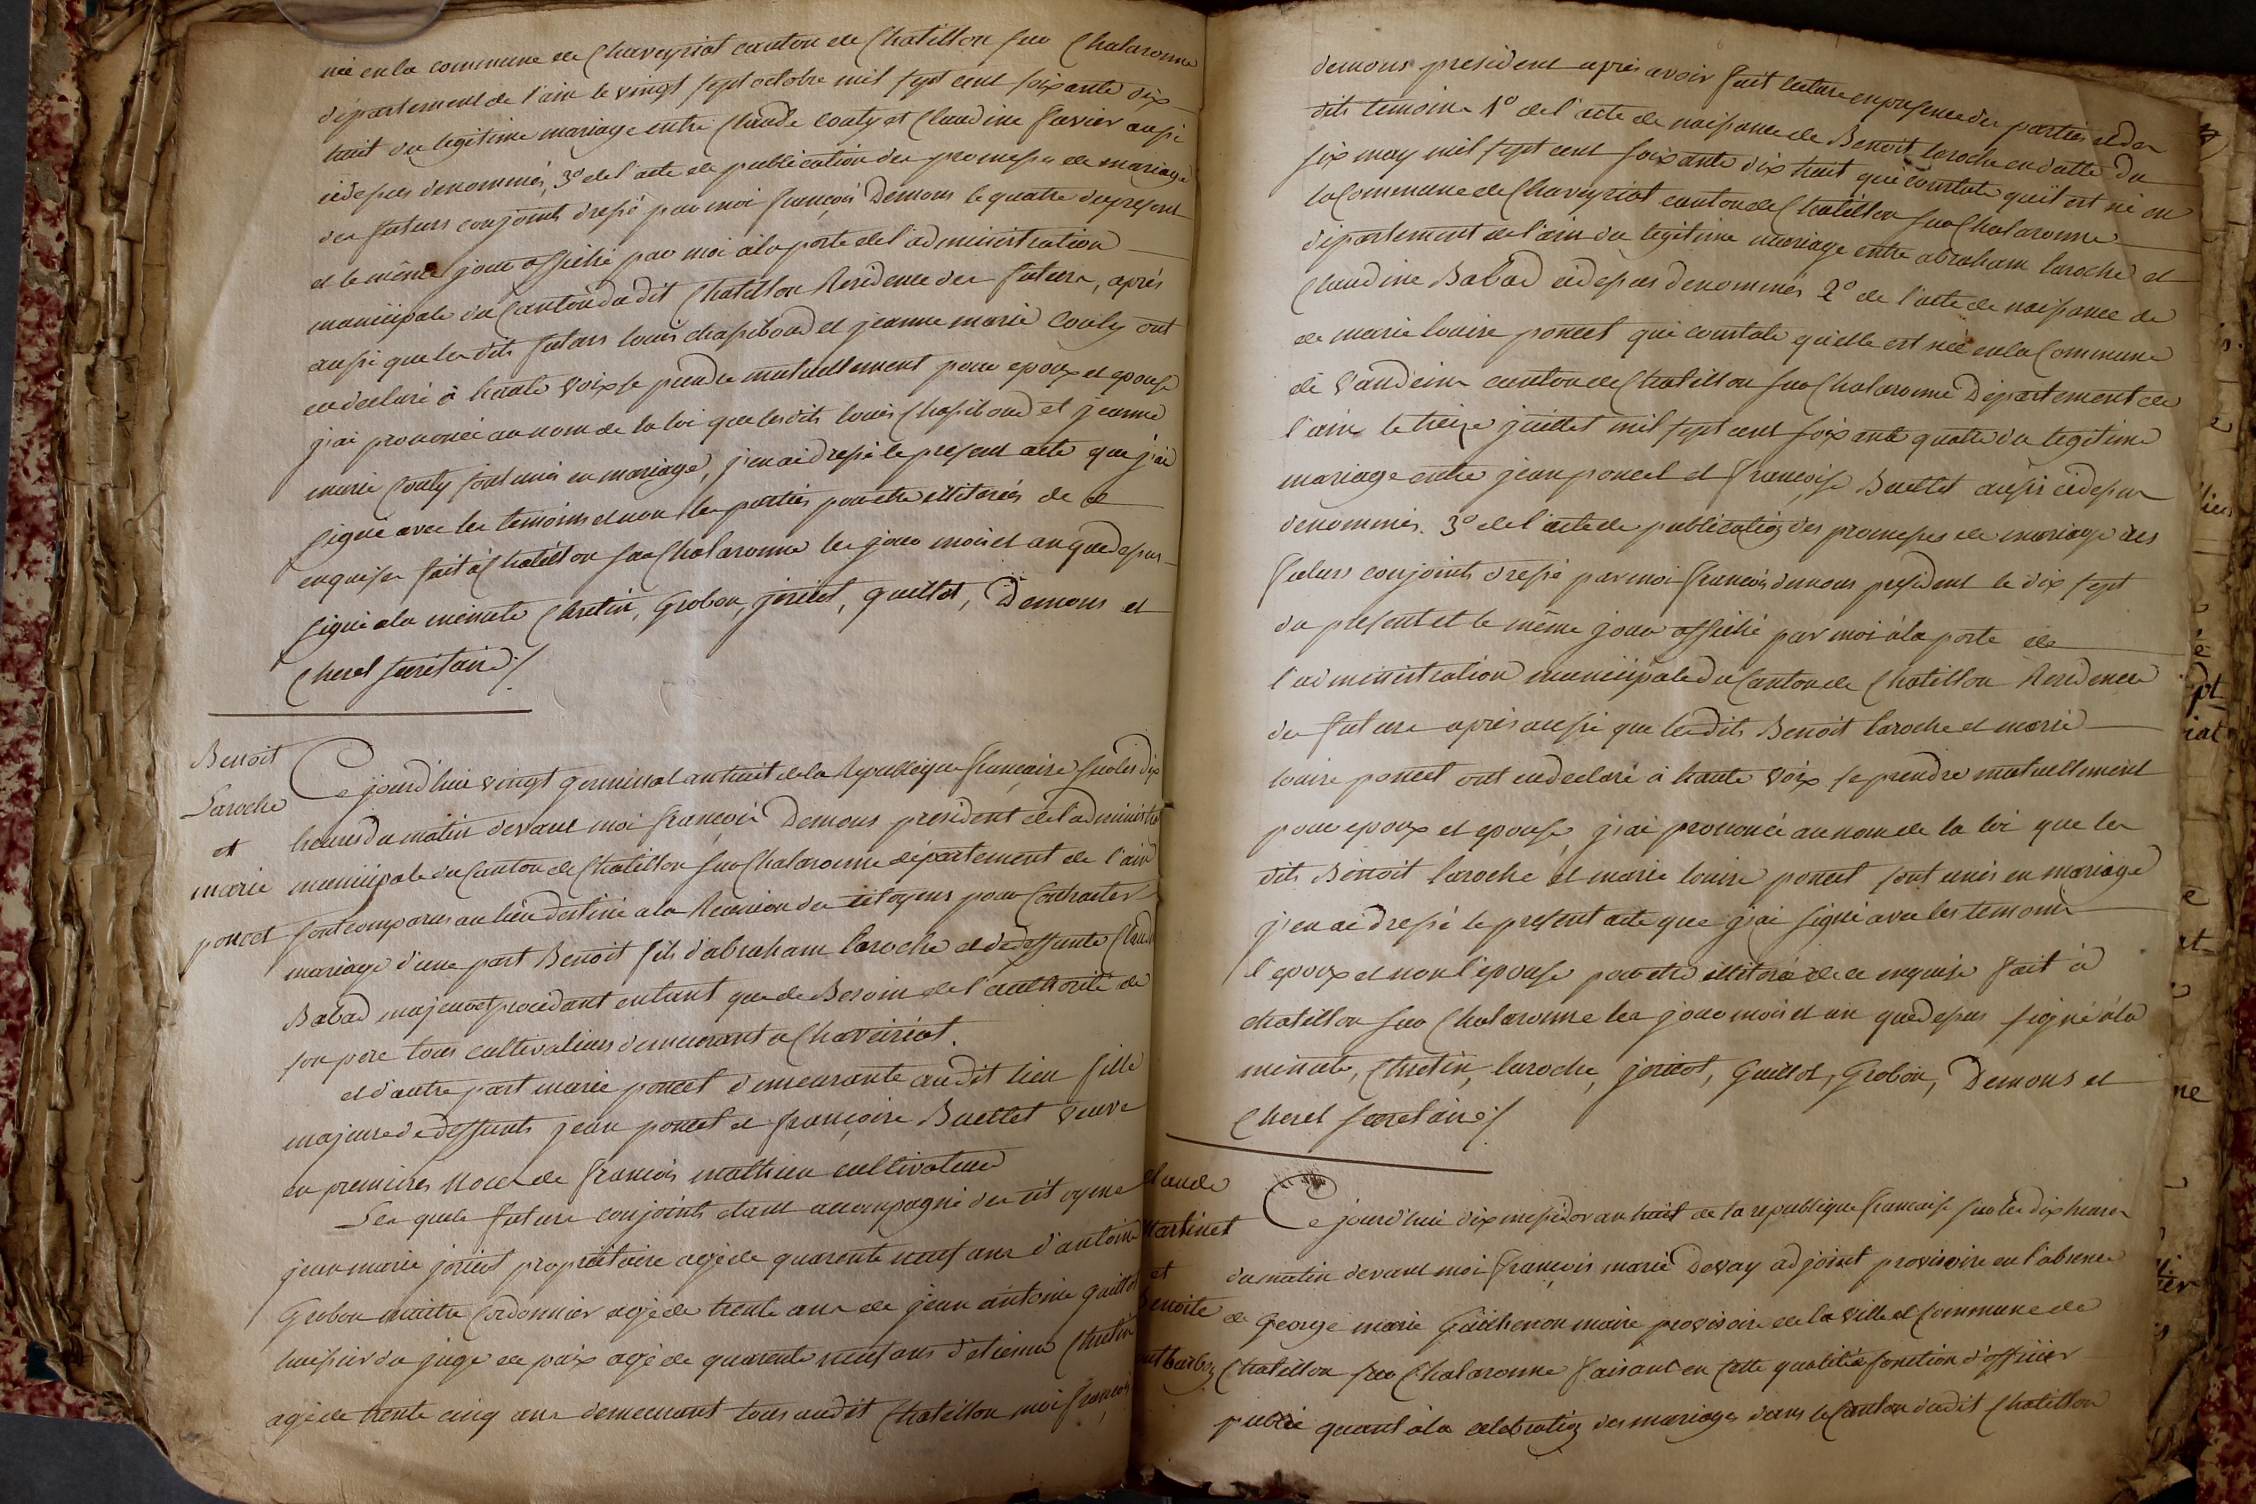 née en la commune de Chaveyriat canton de Chatillon sur Chalaronne
département de l'ain le vingt sept octobre mil sept cent soixante dix
huit du legitime mariage entre Claude Couly et Claudine Favier aussi
cidessus denommés, 3° de l'acte de publication des promesses de mariage
des futurs conjoints dressé par moi françois Demons le quatre du present
et le même jour affiché par moi à la porte de l'administration
municipale du Canton dudit Chatillon Residence des futurs, après
aussi que lesdits futurs louis chassiboud et jeanne marie Couly ont
eu declaré à haute voix se prendre mutuellement pour epoux et epouse
j'ai prononcé au nom de la loi que lesdits louis Chassiboud et jeanne
marie Couly sont unis en mariage, j'en ai dressé le present acte que j'ai
signé avec les temoins et non les parties pour etre illiterées de ce
enquises fait à Chatillon sur Chalaronne les jour mois et an que dessus
signé a la minute Chretin, Grobon, joricot, guillot, Demons et
Cherel secrétaire ./
Benoit
Laroche
et
marie
poncet
Ce jourd'hui vingt germinal an huit de la Republique française sur les dix
heures du matin devant moi françois Demons president de l'administrat
municipale du Canton de Chatillon sur Chalaronne département de l'ain
sont comparus au lieu destiné a la Reunion des citoyens pour Contracter
mariage d'une part Benoit fils d'abraham laroche et de deffunte Claud
Babad majeur et procédant entant que de Besoin de l'authorité de
son pere tous cultivateurs demeurant a Chaveiriat.
et d'autre part marie poncet demeurante audit lieu fille
majeure de deffunts jean poncet et françoise Buellet veuve
en premières noces de françois mathieu cultivateur
Les quels futurs conjoints etant accompagné des citoyens
jean marie joricot propriétaire agé de quarente neuf ans d'antoine
Grobon maitre Cordonnier agé de trente ans de jean antoine guillot
huissier du juge de paix agé de quarente neuf ans d'etienne Chretin
agé de trente cinq ans demeurant tous audit Chatillon moi françois
demons president après avoir fait lecture en presence des parties et des
dits temoins 1° de l'acte de naissance de Benoit laroche en datte du
six may mil sept cent soixante dix huit qui constate qu'il est né en
la Commune de Chaveyriat canton de Chatillon sur Chalaronne
département de l'ain du legitime mariage entre abraham laroche et
Claudine Babad cidessus denommés 2° de l'acte de naissance de
de marie louise poncet qui constate qu'elle est née en la Commune
de Vandeins canton de Chatillon sur Chalaronne Département de
l'ain le treize juillet mil sept cent soixante quatre du legitime
mariage entre jean poncet et françoise Buellet aussi cidessus
denommés. 3° de l'acte de publication des promesses de mariage des
futurs conjoints dressé par moi françois demons president le dix sept
du present et le même jour affiché par moi à la porte de
l'administration municipale du Canton de Chatillon Residence
des futurs après aussi que lesdits Benoit laroche et marie
louise poncet ont eu declaré à haute voix se prendre mutuellement
pour epoux et epouse, j'ai prononcé au nom de la loi que les
dits Benoit laroche et marie louise poncet sont unis en mariage
j'en ai dressé le present acte que j'ai signé avec les temoins
l'epoux et non l'epouse pour etre illiterée de ce enquise fait à
chatillon sur Chalaronne les jour mois et an que dessus signé à la
minute, Chretin, laroche, joricot, Guillot, Grobon, Demons et
Cherel secretaire ./
Claude
Martinet
et
Benoite
Ce jourd'hui dix messidor an huit de la republique française sur les dix heures
du matin devant moi françois marie Dovay adjoint provisoire en l'absence
de George marie Guichenon maire provisoire de la ville et Commune de
Chatillon sur Chalaronne faisant en cette qualité fonction d'officier
public quant à la celebration des mariages dans le Canton dudit Chatillon